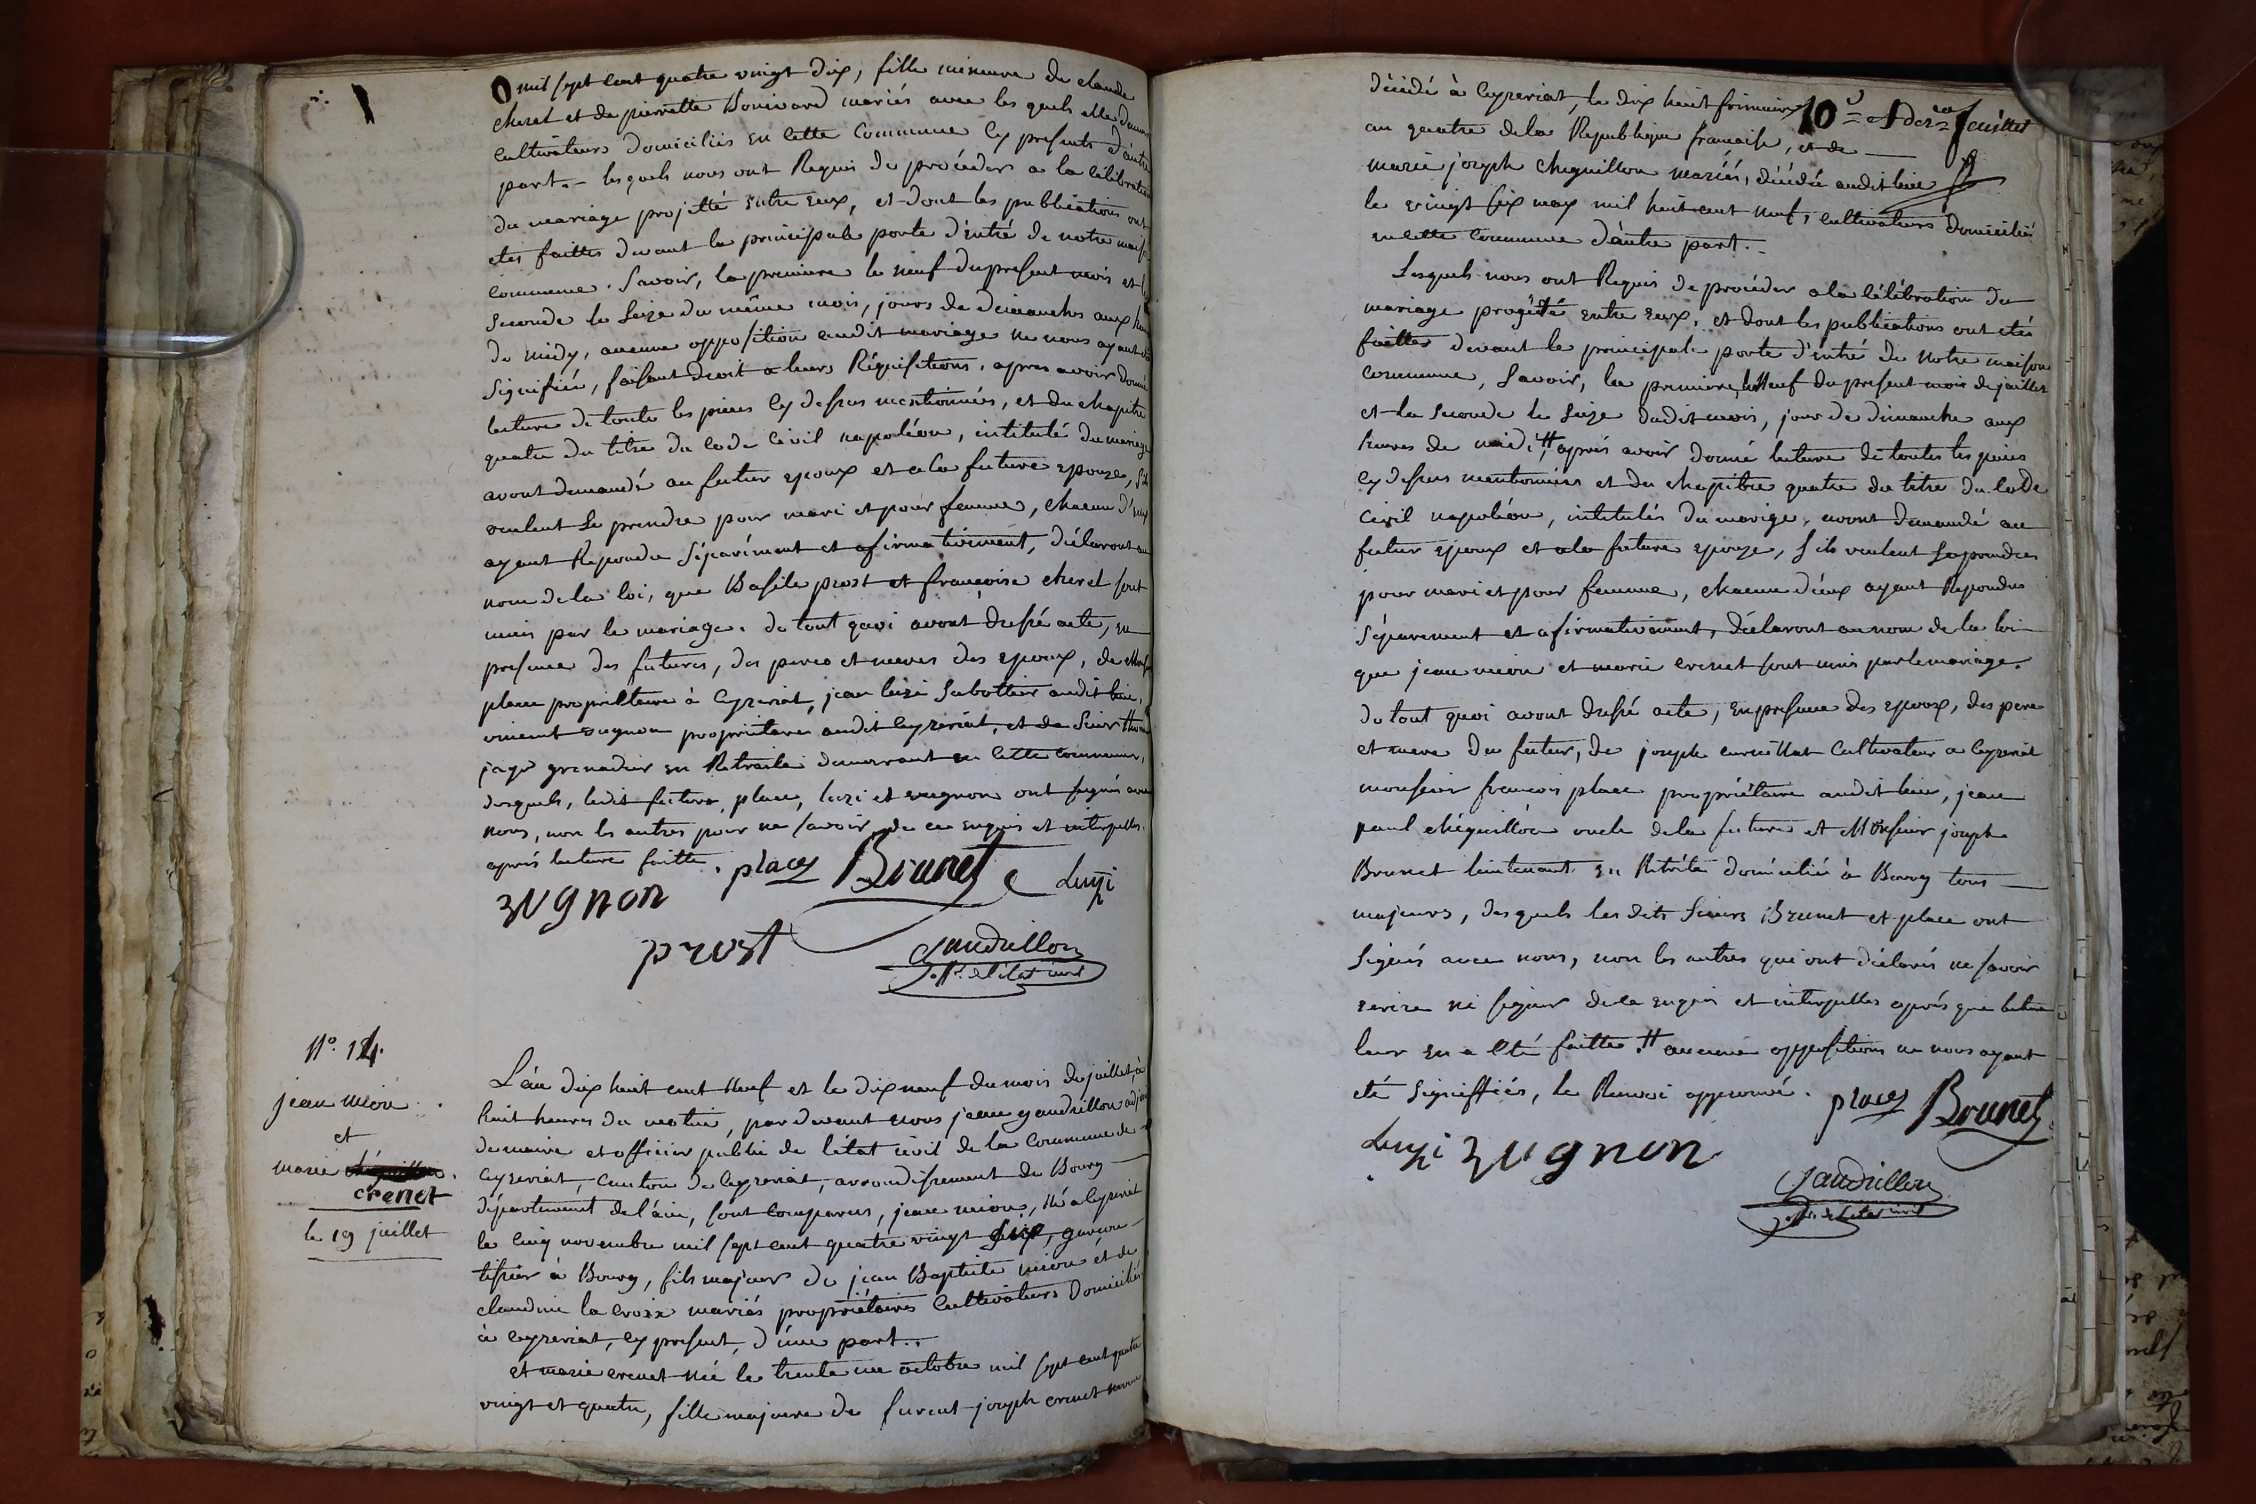 mil sept cent quatre vingt dix, fille mineure de claude
cheret et de pierrette Bonivard mariés avec les quels elle demeure
cultivateurs domiciliés en cette Commune cy presents d'autre
part. - lesquels nous ont Requis de procéder a la célébration
du mariage projetté entre eux, et dont les publications ont
étés faittes devant la principale porte d'entré de notre maison
commune. Savoir, la premiere le neuf du present mois et la
seconde le seize du même mois, jours de dimanches aux heures
de midy, aucune opposition audit mariage ne nous ayant été
signifiée, faisant droit a leurs Réquisitions, apres avoir donné
lecture de toute les pieces cy dessus mentionnées, et du chapitre
quatre du titre du code Civil napoléon, intitulé du mariage
avont demandé au futur epoux et a la future epouze, s'ils
veulent se prendre pour mari et pour femme, chacun d'eux
ayant Repondu séparément et afirmativement, déclaront au
nom de la loi, que Basile prost et françoise cheret sont
unis par le mariage. de tout quoi avont dressé acte, en
presence des futures, des peres et meres des epoux, de
place propriettaire à Ceyzeriat, jean luizi Sabottier audit lieu,
vincent zugnon propriétaire audit Ceyzeriat, et de Sieur
jayr grenadier en Retraite demeurant en cette commune,
desquels, ledit future, place, luizi et zugnon ont signés avec
nous, non les autres pour ne savoir, de ce enquis et interpellés.
après lecture faitte. place Brunet Luizi
zugnon
prost Gaudrillon
off. de l'état civil
N.° 14.
jean mion
et
marie
crenet
le 19 juillet
L'an dix huit cent neuf et le dix neuf du mois de juillet, à
huit heures du matin, par devant nous jean gaudrillon adjoint
de maire et officier public de l'état civil de la Commune de
Ceyzeriat, Canton de Ceyzeriat, arrondissement de Bourg
département de l'ain, sont comparus, jean mion, né a Ceyzeriat
le cinq novembre mil sept cent quatre vingt six, garçon
tissier à Bourg, fils majeur de jean Baptiste mion et de
claudine la croix mariés propriétaires Cultivateurs Domiciliés
à Ceyzeriat, cy present, d'une part..
et marie crenet née le trente un octobre mil sept cent quatre
vingt et quatre, fille majeure de furent joseph crenet
10.e et der.er feuillet
décédé à Ceyzeriat, le dix huit frimaire
an quatre de la Republique française, et de
marie joseph cheguillon mariés, décédée audit lieu
le vingt six may mil huit cent neuf, cultivateurs domiciliés
en cette commune d'autre part. -
Lesquels nous ont Requis de procéder a la célébration du
mariage progété entre eux, et dont les publications ont étés
faittes devant la principale porte d'entré de notre maison
commune, Savoir, la premiere, le neuf du present mois de juillet
et la seconde le seize dudit mois, jour de dimanche aux
heures de midi, # aprés avoir donné lecture de toutes les pieces
cy dessus mentionnées et du chapitre quatre du titre du code
Civil napoléon, intitulés du marige, avont demandé au
futur epoux et a la future epouze, s'ils veulent se prendre
pour mari et pour femme, chacun d'eux ayant Repondus
séparement et afirmativement, déclaront au nom de la loi
que jean mion et marie crenet sont unis par le mariage.
de tout quoi avont dressé acte, en presence des epoux, des pere
et mere du futur, de joseph curnillat Cultivateur a Ceyzeriat
monsieur françois place propriétaire audit lieu, jean
paul chéguillon oncle de la future et Monsieur joseph
Brunet lieutenant en Retréte domicilié à Bourg tous
majeurs, desquels les dits sieurs Brunet et place ont
signés avec nous, non les autres qui ont déclarés ne savoir
ecrire ni signer de ce enquis et interpellés aprés que lecture
leur en a été faitte. # aucune oppositions ne nous ayant
été signiffiés, le Renvoi approuvé. place Brunet
Luizi zugnon
Gaudrillon
off. de l'état civil